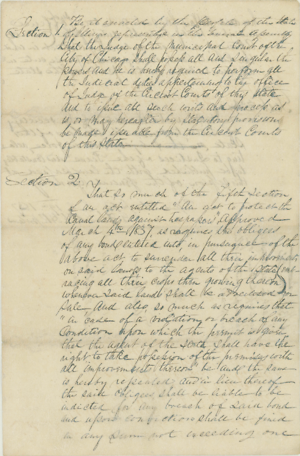 Section 1 Be it enacted by the People of the State
of Illinois represented in the General Assembly
That the Judge of the Municipal Court of the
City of Chicago shall possess all and singular the
powers and he is hereby required to perform all
the Judicial duties appertaining to the office
of Judge of the Circuit Courts of this State
and to issue all such writs and process as
is, or may hereafter by Statutory provisions
be made issuable from the Circuit Courts
of this State
Section 2 That so much of the fifth Section
of an act entitled "An act to protect the
Canal Lands against trespasses" Approved
March 4th 1837, as requires the obligors
of any bond entered into, in pursuance of the
above act, to surrender all their improvements
on said lands to the agents of the State
all their crops then growing thereon
whenever said lands shall be advertised for
Sale. And also so much as requires that
"in case of a violation, or breach of any
Condition upon which the permit is given
that the agent of the State shall have the
right to take possession of the premises with
all improvements thereon" be and the same
is hereby repealed; and in lieu thereof
the said obligors shall be liable to be
indicted for any breach of said bond
and upon conviction shall be fined
in any sum not exceeding one